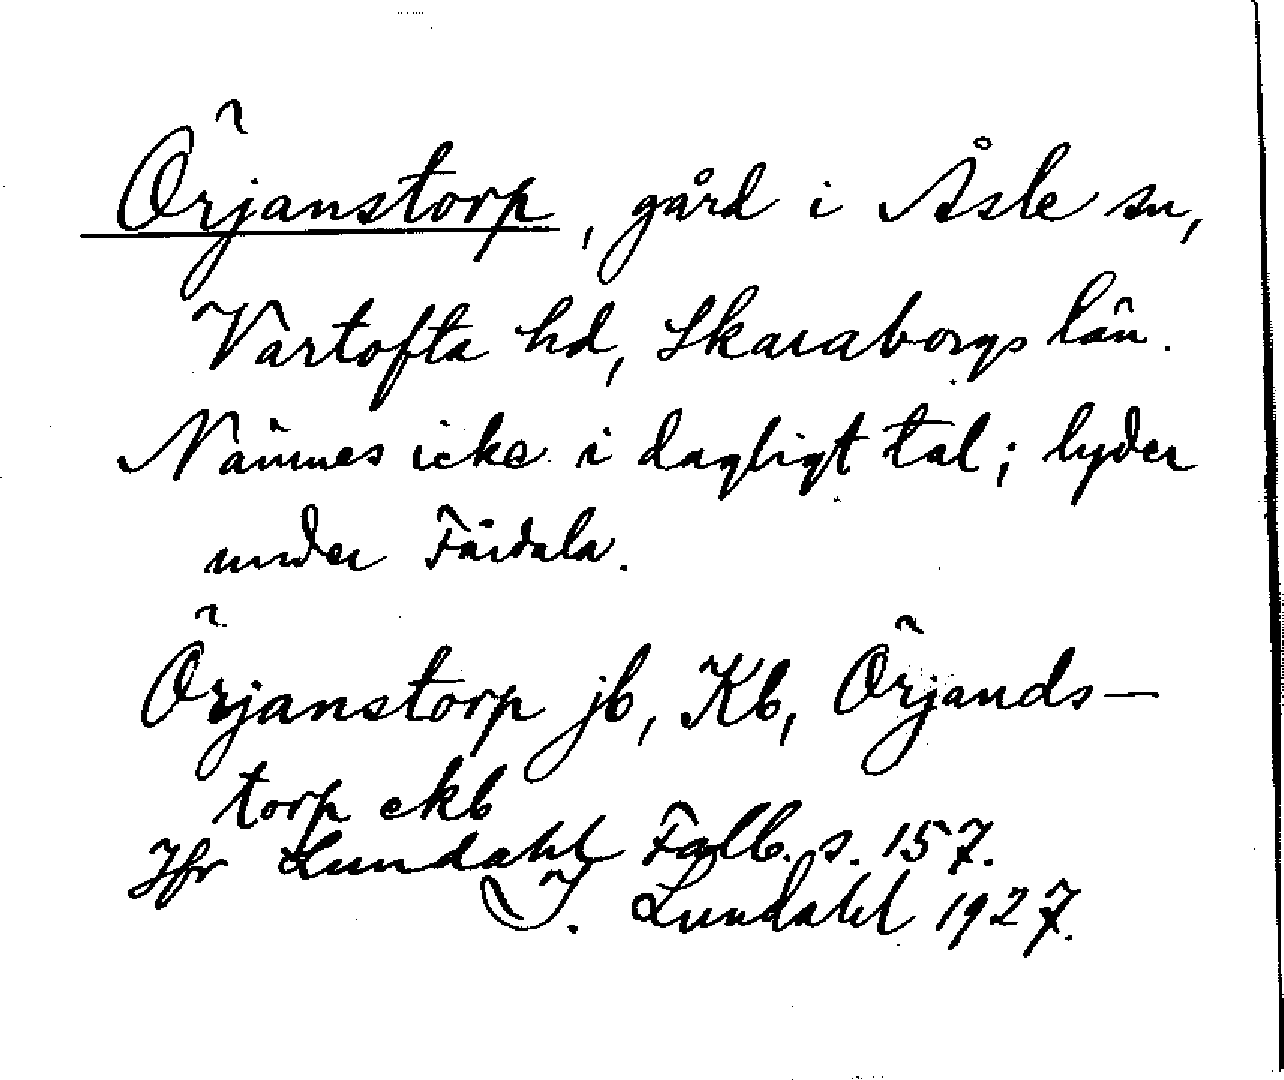 Örjanstorp, gård i Åsle sn,
Vartofta hd, Skaraborgs län.
Nämnes icke i dagligt tal; lyder
under Färdala.
Örjanstorp jb, Kb, Örjands-
torp ekb
Jfr Lundahl Falb. s. 157.
I. Lundahl 1927.